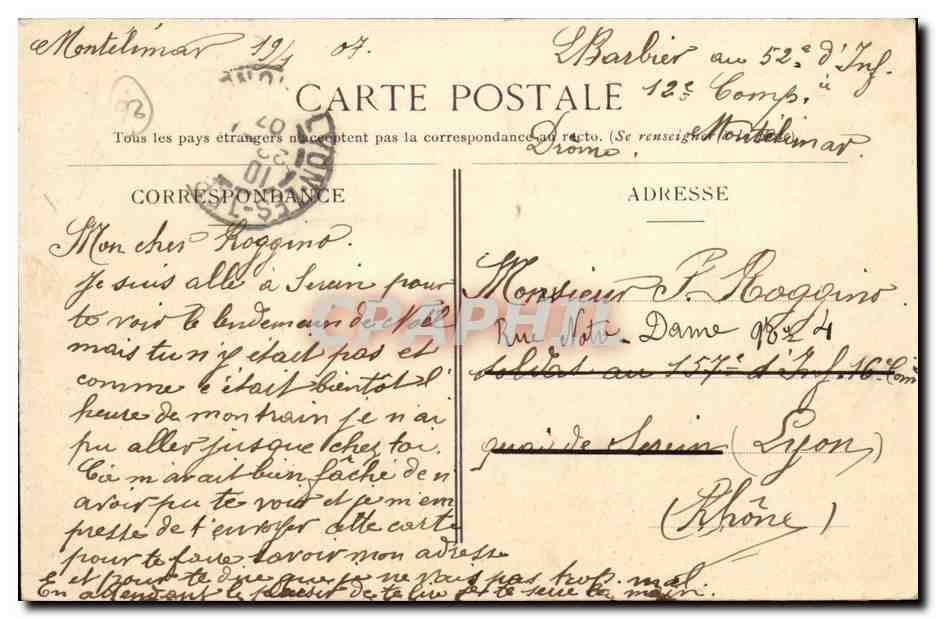 Montélimar 19/1 07.
LBarbier au 52e d'Inf.
12e Comp. ie
Montélimar.
Drôme.
CARTE POSTALE
Tous les pays étrangers n'acceptent pas la correspondance au recto. (Se renseigner à la Poste)
LYON
CORRESPONDANCE
ADRESSE
Mon cher Roggino.
Je suis allé à Serin pour
te voir le lendemain de Noël
mais tu n'y était pas et
comme c'était bientôt l'
heure de mon train je n'ai
pu aller jusque chez toi.
Ça m'avait bien fâché de n'
avoir pu te voir et je m'em
presse de t'envoyer cette carte
pour te faire savoir mon adresse
E et pour te dire que je ne vais pas trop mal.
En attendant le plaisir de te lire je te serre la main.
Monsieur P. Roggino.
Rue Notre-Dame 4
soldat au 157e d'Inf. 16e Com
quai de Serin (Lyon)
(Rhône)
CPAPHIL